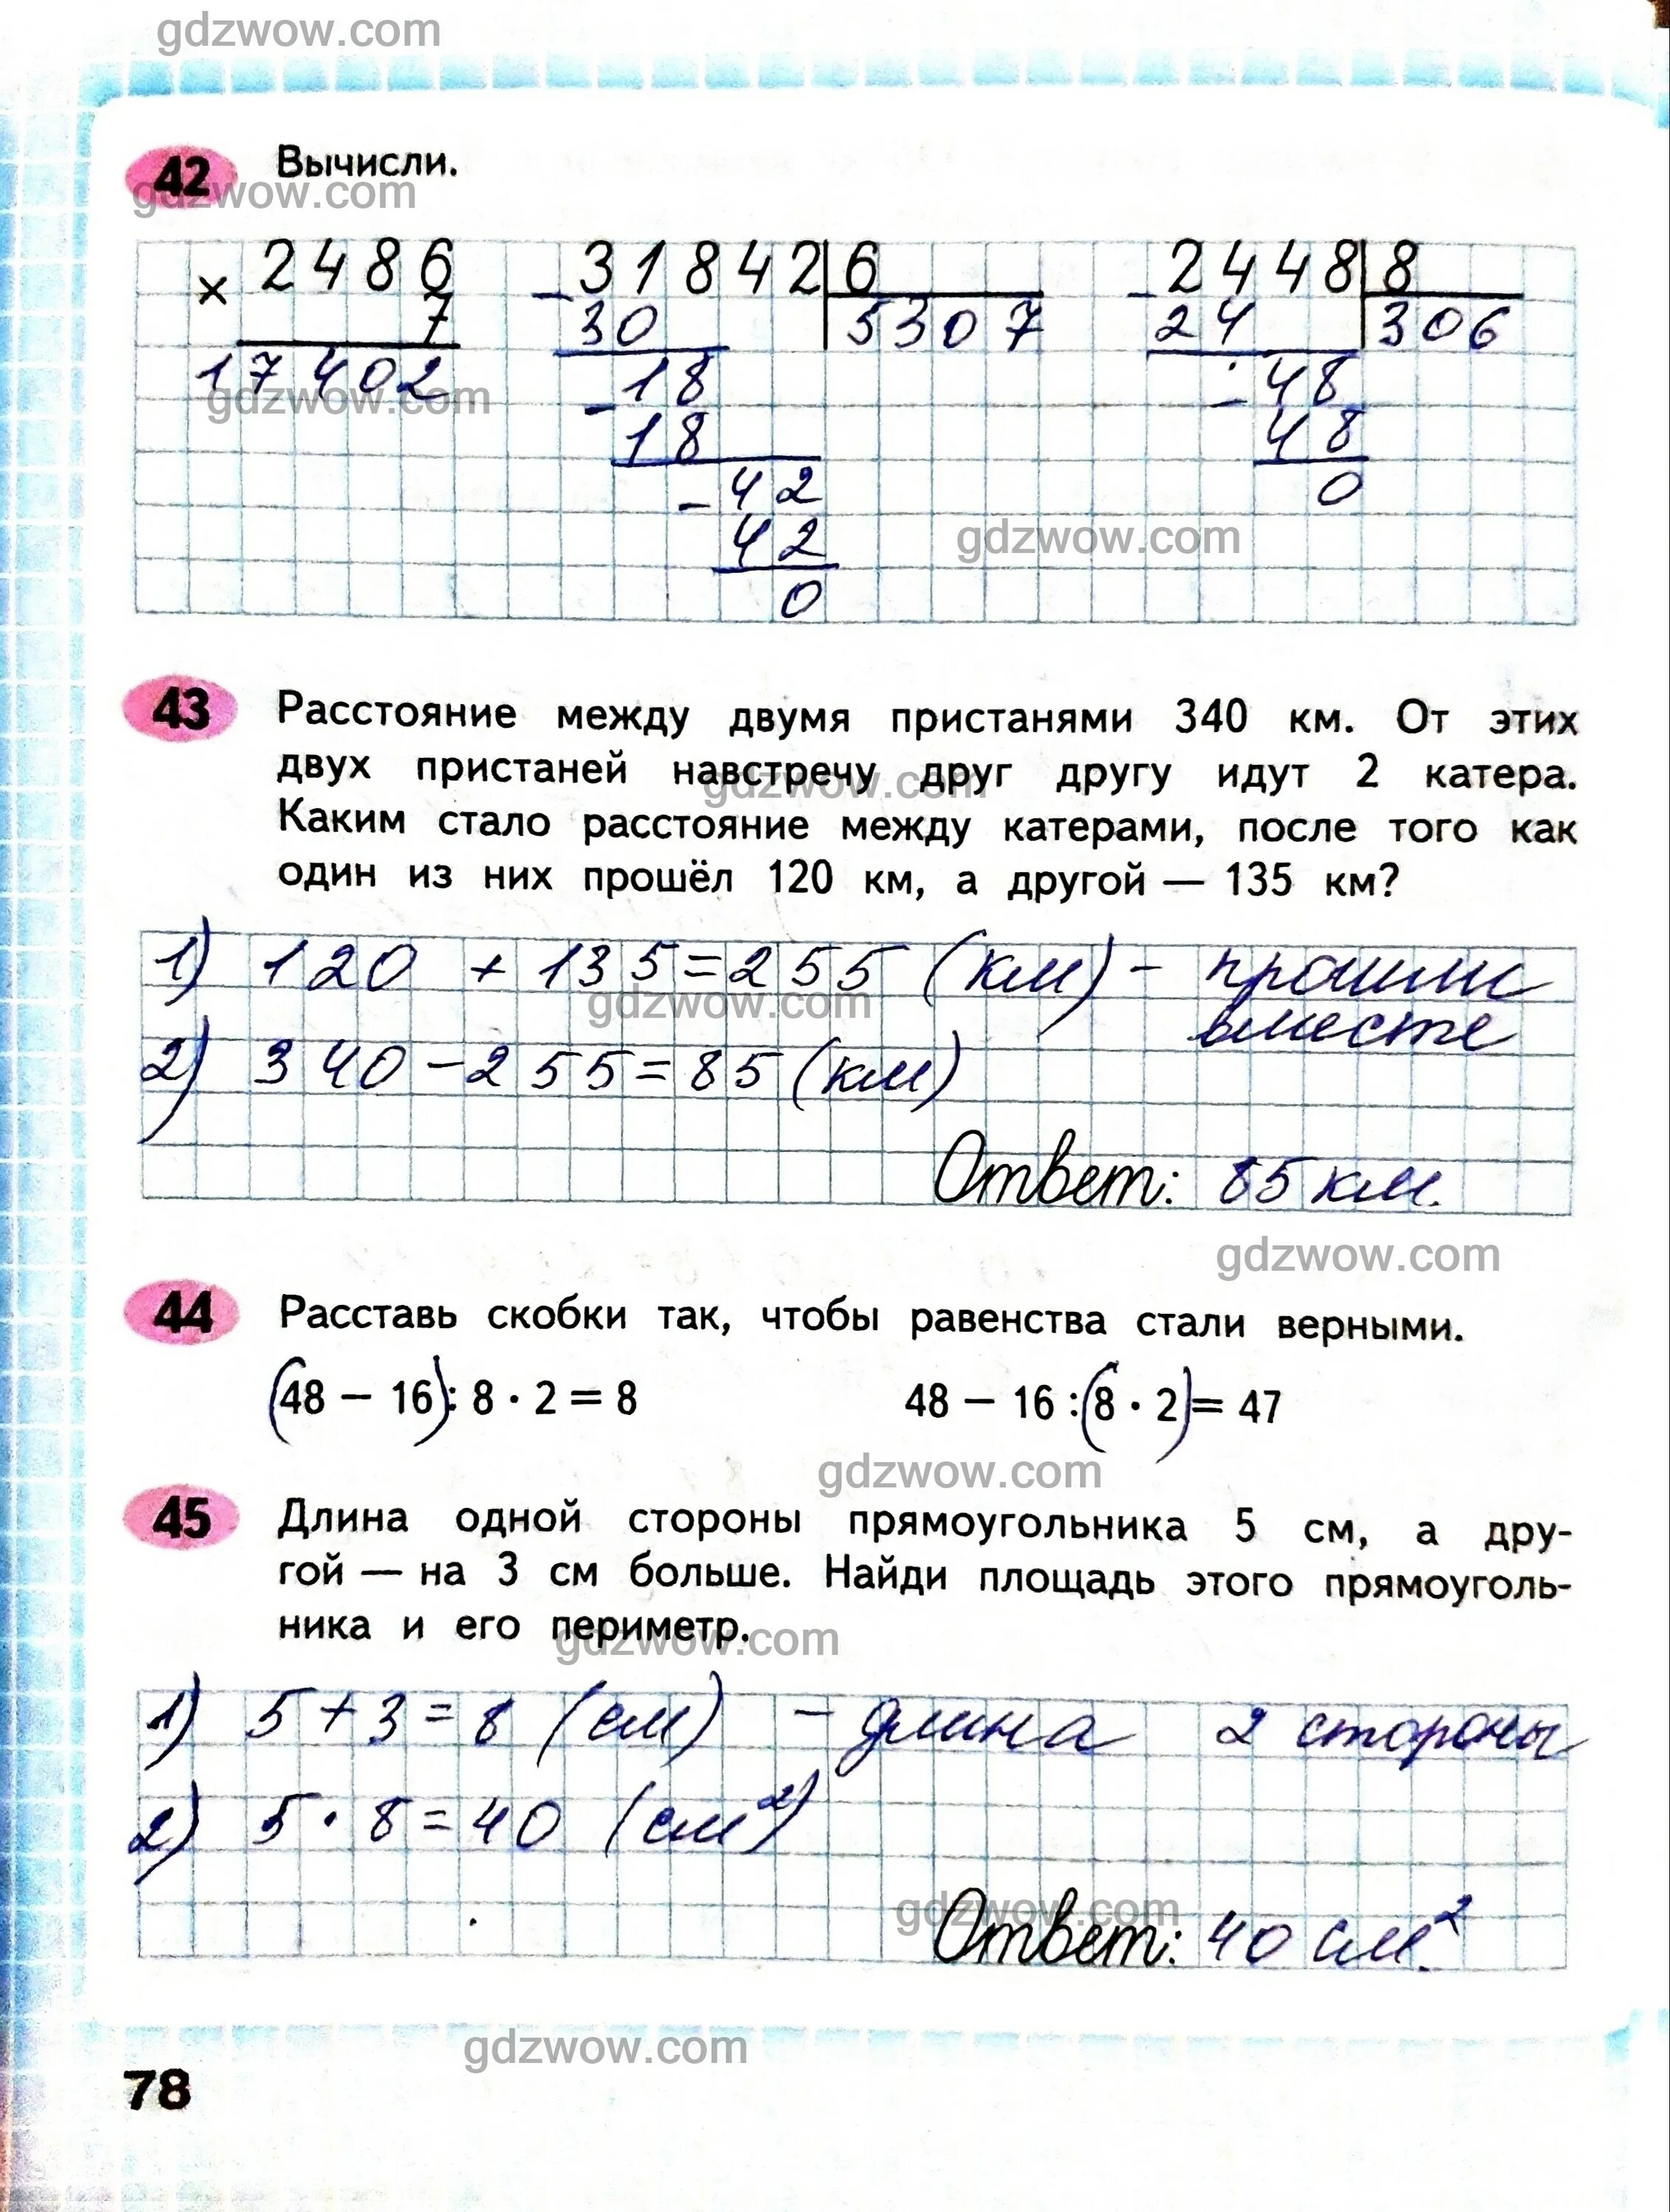 gdzwow.com
42 Вычисли.
gdzwow.com
× 2486 - 31842|6 - 2448|8
7 30 5307 24 306
17402 - 18 - 48
gdzwow.com
18 48
- 42 0
42
gdzwow.com
0
43 Расстояние между двумя пристанями 340 км. От этих
двух пристаней навстречу друг другу идут 2 катера.
gdzwow.com
Каким стало расстояние между катерами, после того как
один из них прошёл 120 км, а другой — 135 км?
1) 120 + 135 = 255 (км) - прошли
gdzwow.com
вместе
2) 340 - 255 = 85 (км)
Ответ: 85 км.
gdzwow.com
44 Расставь скобки так, чтобы равенства стали верными.
(48 − 16) : 8 · 2 = 8 48 − 16 : (8 · 2) = 47
gdzwow.com
45 Длина одной стороны прямоугольника 5 см, а дру-
гой — на 3 см больше. Найди площадь этого прямоуголь-
ника и его периметр.
gdzwow.com
1) 5 + 3 = 8 (см) - длина 2 стороны
2) 5 · 8 = 40 (см²)
gdzwow.com
Ответ: 40 см².
gdzwow.com
78